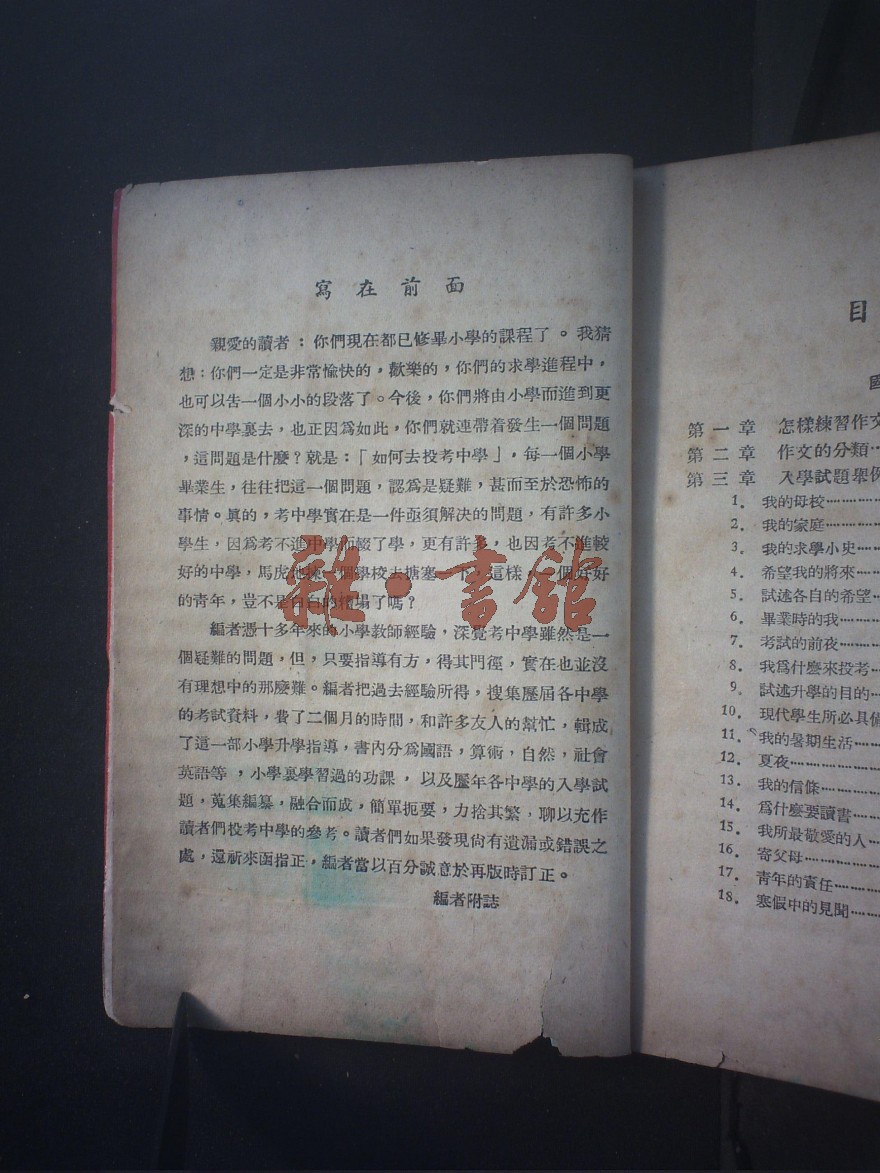 寫在前面
親愛的讀者：你們現在都已修畢小學的課程了。我猜
想：你們一定是非常愉快的，歡樂的，你們的求學進程中，
也可以告一個小小的段落了。今後，你們將由小學而進到更
深的中學裏去，也正因爲如此，你們就連帶着發生一個問題
，這問題是什麼？就是：「如何去投考中學」，每一個小學
畢業生，往往把這一個問題，認爲是疑難，甚而至於恐怖的
事情。眞的，考中學實在是一件亟須解決的問題，有許多小
學生，因爲考不進中學而輟了學，更有許多，也因考不進較
好的中學，馬虎他揀一個學校去搪塞一下，這樣，一個好好
的青年，豈不是白白的糟塌了嗎？
編者憑十多年來的小學教師經驗，深覺考中學雖然是一
個疑難的問題，但，只要指導有方，得其門徑，實在也並沒
有理想中的那麼難。編者把過去經驗所得，搜集歷屆各中學
的考試資料，費了二個月的時間，和許多友人的幫忙，輯成
了這一部小學升學指導，書內分爲國語，算術，自然，社會
英語等，小學裏學習過的功課，以及歷年各中學的入學試
題，蒐集編纂，融合而成，簡單扼要，力捨其繁，聊以充作
讀者們投考中學的參考。讀者們如果發現尙有遺漏或錯誤之
處，還祈來函指正，編者當以百分誠意於再版時訂正。
編者附誌
雜·書館
目
國
第一章 怎樣練習作文
第二章 作文的分類
第三章 入學試題舉例
1. 我的母校
2. 我的家庭
3. 我的求學小史
4. 希望我的將來
5. 試述各自的希望
6. 畢業時的我
7. 考試的前夜
8. 我爲什麼來投考
9. 試述升學的目的
10. 現代學生所必具備
11. 我的暑期生活
12. 夏夜
13. 我的信條
14. 爲什麼要讀書
15. 我所最敬愛的人
16. 寄父母
17. 靑年的責任
18. 寒假中的見聞